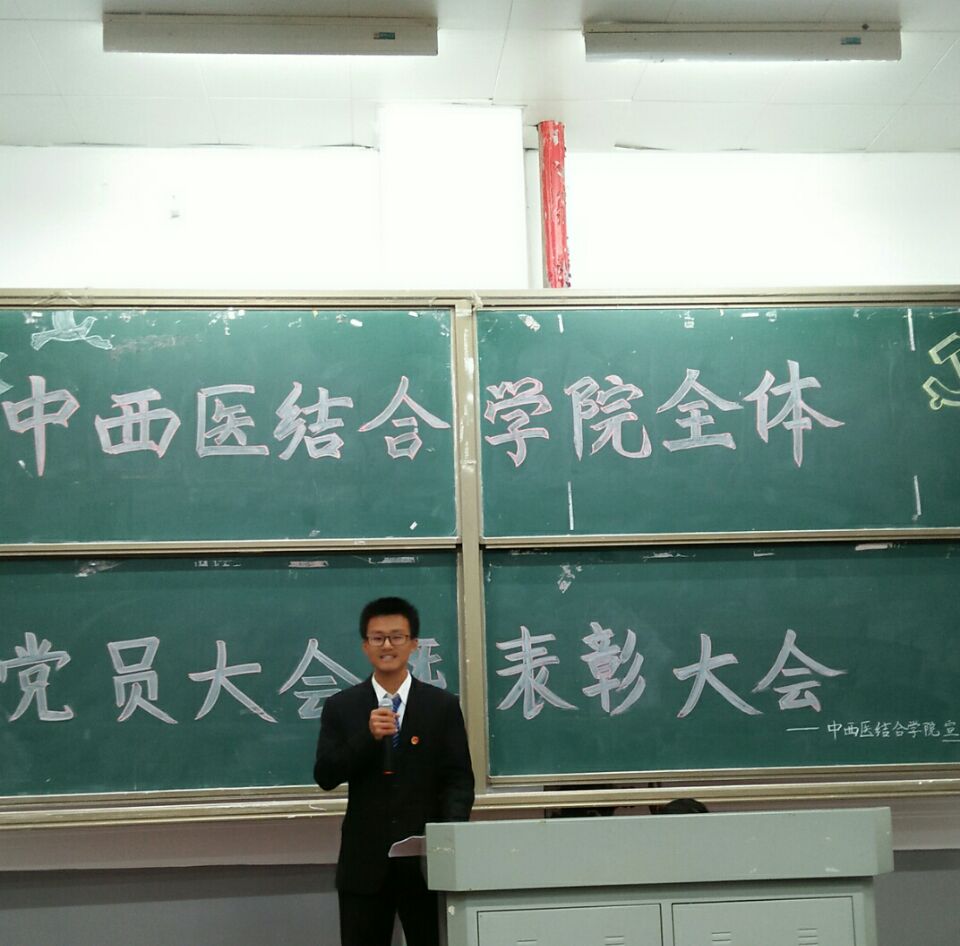 中西医结合学院全体
党员大会暨表彰大会
——中西医结合学院宣